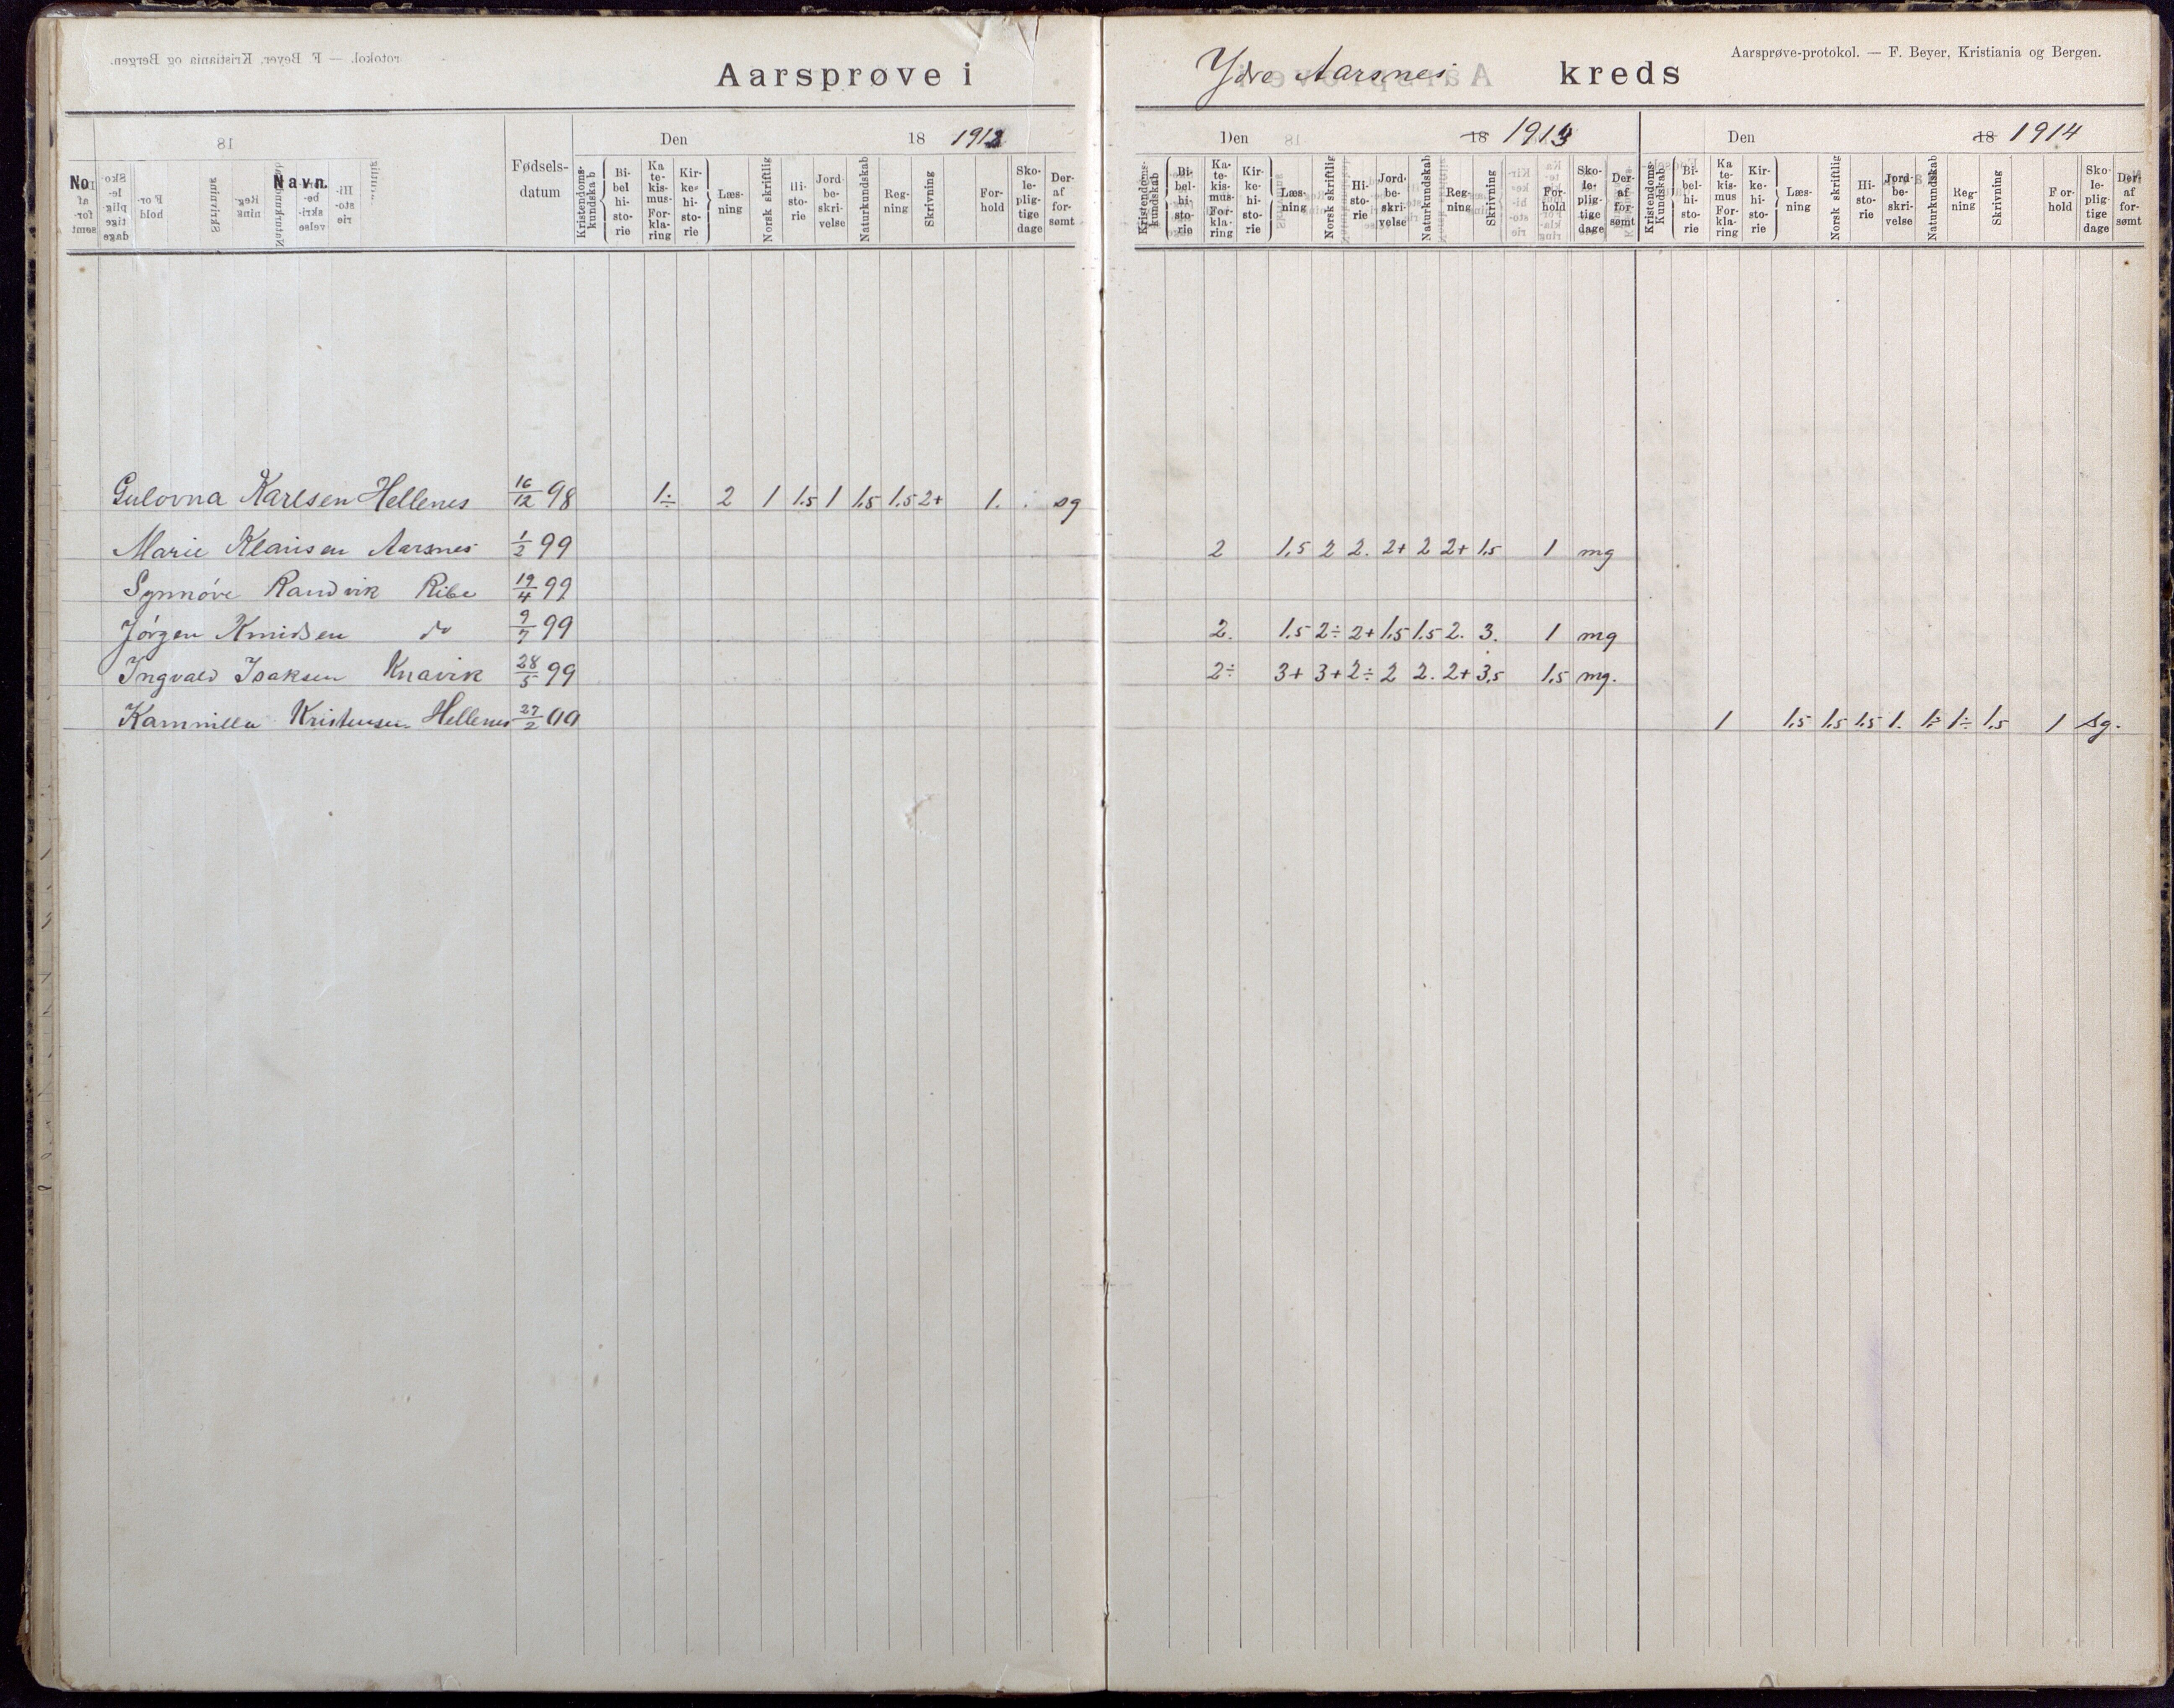 Aarsprøve i Ydre Aarsnes kreds
Aarsprøve-protokol. — F. Beyer, Kristiania og Bergen.
Den 18 1913
Den 18 1913
Den 18 1914
No Navn. Fødselsdatum Kristendomskundskab Bibelhistorie Katekismus-Forklaring Kirkehistorie Læsning Norsk skriftlig Historie Jordbeskrivelse Naturkundskab Regning Skrivning Forhold Skolepligtige dage Deraf forsømt
Kristendomskundskab Bibelhistorie Katekismus-Forklaring Kirkehistorie Læsning Norsk skriftlig Historie Jordbeskrivelse Naturkundskab Regning Skrivning Forhold Skolepligtige dage Deraf forsømt
Kristendoms-Kundskab Bibelhistorie Katekismus Forklaring Kirkehistorie Læsning Norsk skriftlig Historie Jordbeskrivelse Naturkundskab Regning Skrivning Forhold Skolepligtige dage Deraf forsømt
Gulovna Karlsen Hellenes 16/12 98 1÷ 2 1 1.5 1 1.5 1.5 2+ 1. sg
Marie Klausen Aarsnes 1/2 99 2 1,5 2 2. 2+ 2 2+ 1.5 1 mg
Synnøve Randvik Ribe 19/4 99
Jørgen Knudsen do 9/7 99 2. 1.5 2÷ 2+ 1.5 1.5 2. 3. 1 mg
Ingvald Isaksen Knavik 28/5 99 2÷ 3+ 3+ 2÷ 2 2. 2+ 3,5 1,5 mg.
Kammilla Kristensen Hellenes 27/2 00 1 1.5 1.5 1.5 1. 1÷ 1÷ 1.5 1 sg.